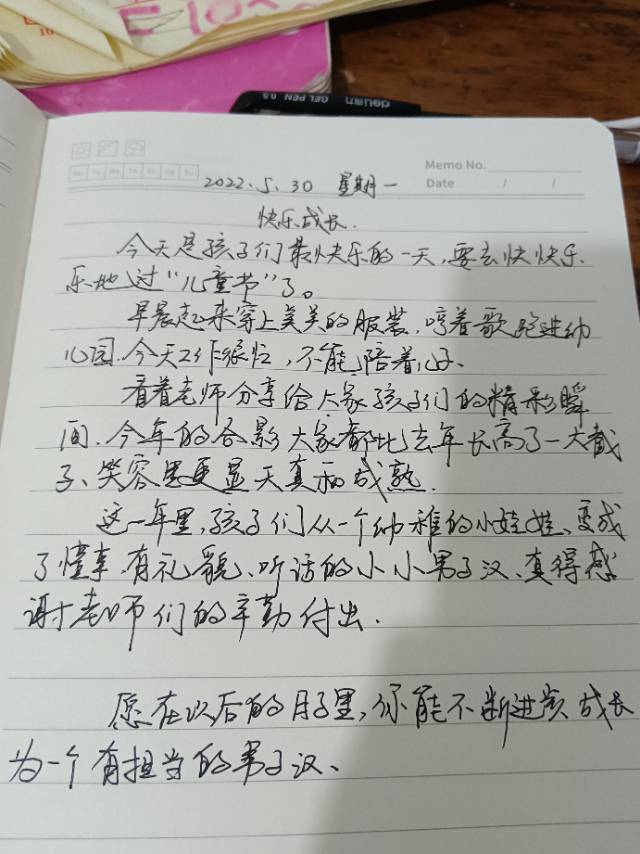 deli GEL PEN 0.5
Memo No.
Date / /
Mo Tu We Th Fr Sa Su
2022.5.30 星期一
快乐成长.
今天是孩子们最快乐的一天,要去快快乐
乐地过“儿童节”了。
早晨起来穿上美美的服装,哼着歌跑进幼
儿园.今天工作很忙,不能陪着心仔.
看着老师分享给大家孩子们的精彩瞬
间.今年的合影大家都比去年长高了一大截
子、笑容里更显天真和成熟.
这一年里,孩子们从一个幼稚的小娃娃、变成
了懂事、有礼貌、听话的小小男子汉、真得感
谢老师们的辛勤付出.
愿在以后的日子里,你能不断进步成长
为一个有担当的男子汉、